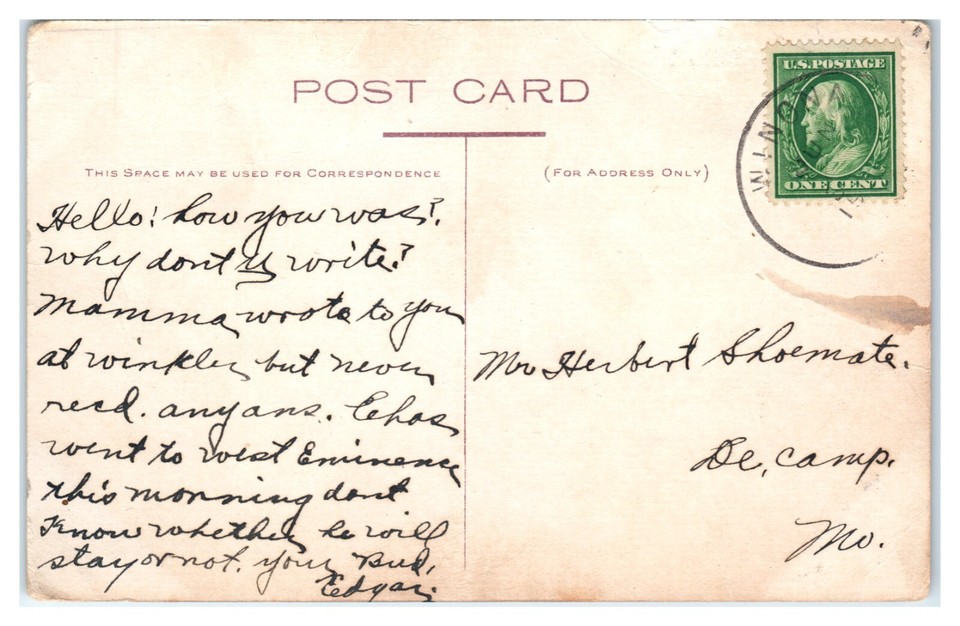 POST CARD
THIS SPACE MAY BE USED FOR CORRESPONDENCE
(FOR ADDRESS ONLY)
U.S. POSTAGE
ONE CENT
WINONA
Hello! how you was?
why dont U write?
Mamma wrote to you
at winkler but never
recd. any ans. Chas
went to west Eminence
this morning dont
know whether he will
stay or not. your Bud,
Edgar.
Mr Herbert Shoemate.
De, camp.
Mo.